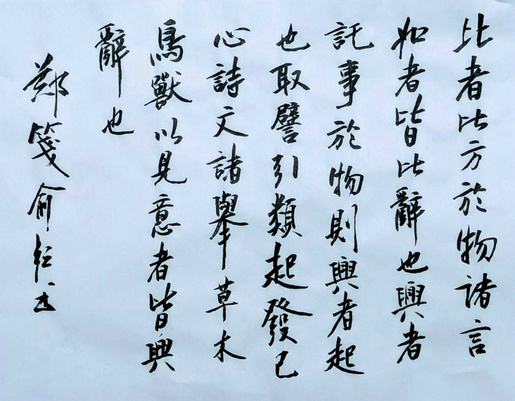 比者比方於物諸言
如者皆比辭也興者
託事於物則興者起
也取譬引類起發己
心詩文諸舉草木
鳥獸以見意者皆興
辭也
鄭箋俞